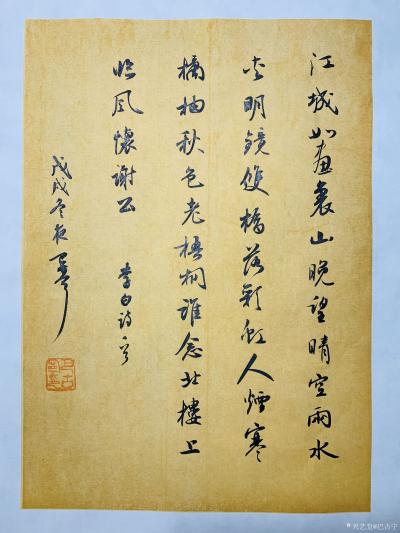 江城如畫裏山晚望晴空雨水
夾明鏡雙橋落彩虹人煙寒
橘柚秋色老梧桐誰念北樓上
臨風懷謝公 李白詩
戊戌冬夜
@巴古宁